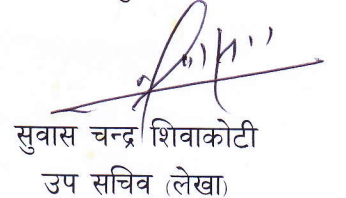 सुवास चन्द्र शिवाकोटी
उप सचिव (लेखा)